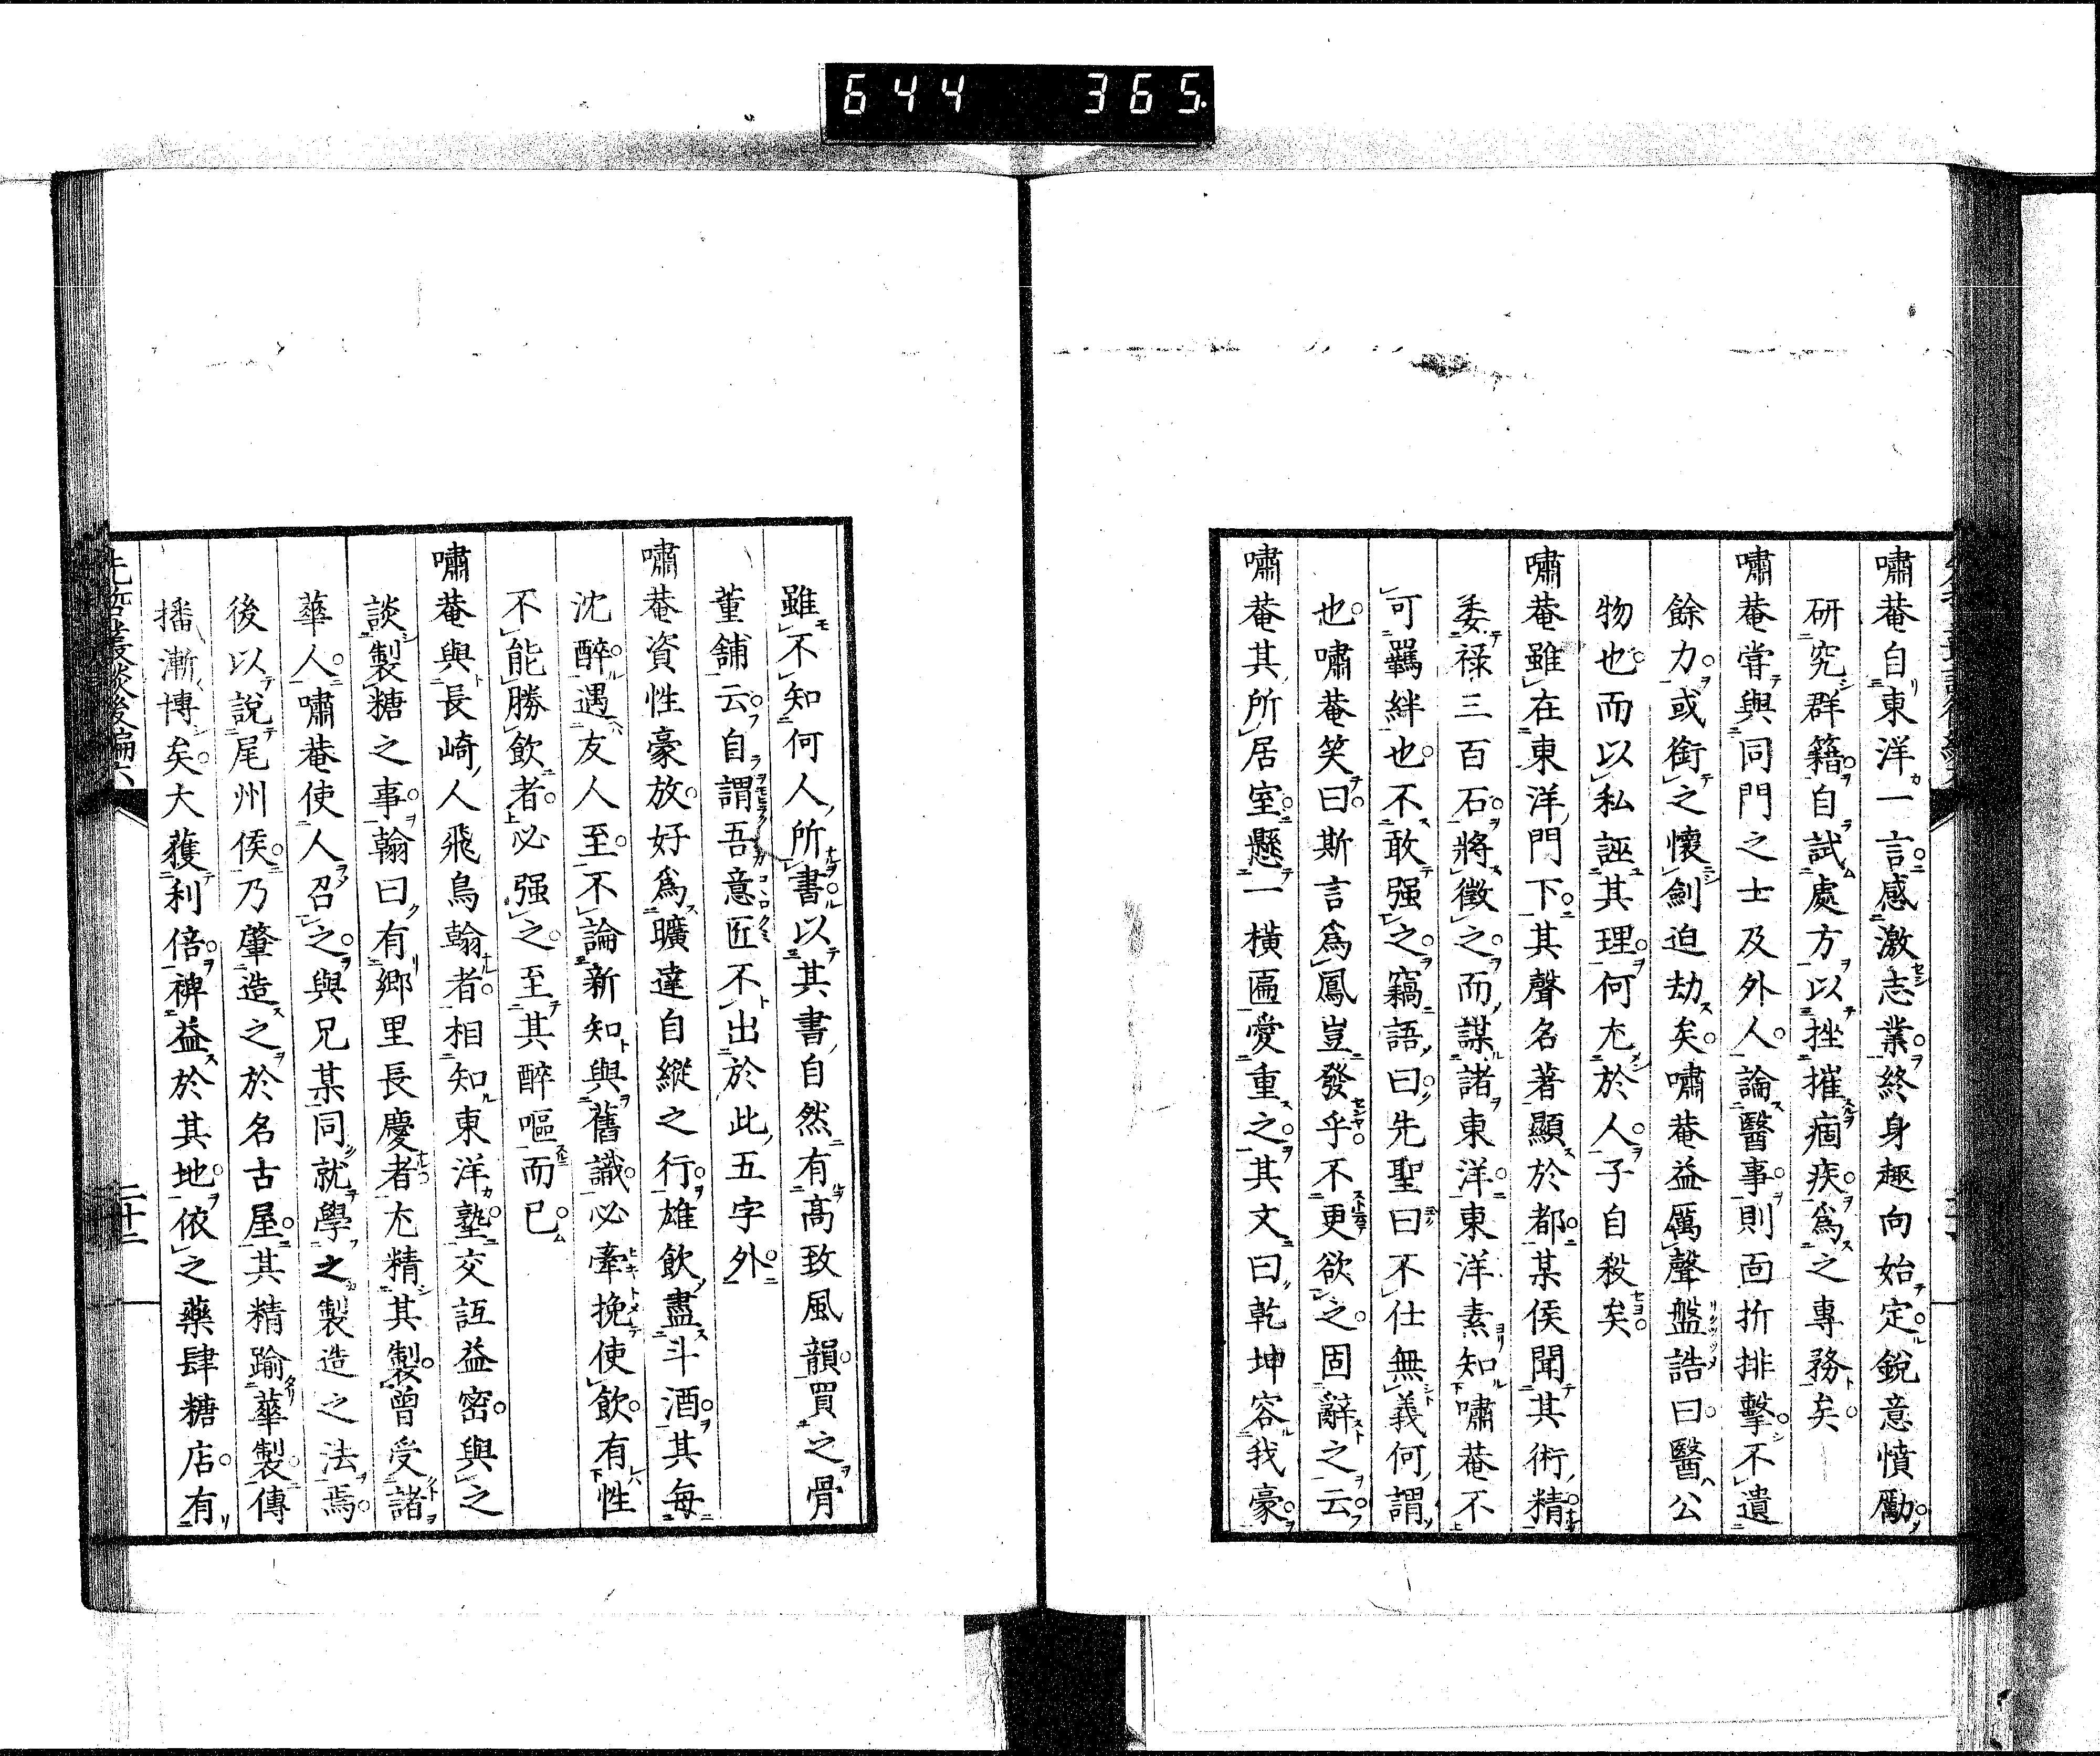 644 365
嘯菴自東洋一言感激志業終身趣向始定銳意憤勵
研究群籍自試處方以挫摧痼疾爲之專務矣
嘯菴嘗與同門之士及外人論醫事則面折排擊不遺
餘力或銜之懷劍迫劫矣嘯菴益厲聲盤誥曰醫公
物也而以私誣其理何尤於人子自殺矣
嘯菴雖在東洋門下其聲名著顯於都某侯聞其術精
委祿三百石將徵之而謀諸東洋東洋素知嘯菴不
可羈絆也不敢强之竊語曰先聖曰不仕無義何謂
也嘯菴笑曰斯言爲鳳豈發乎不更欲之固辭之云
嘯菴其所居室懸一橫匾愛重之其文曰乾坤容我豪
雖不知何人所書以其書自然有高致風韻買之骨
董舖云自謂吾意匠不出於此五字外
嘯菴資性豪放好爲曠達自縱之行雄飲盡斗酒其每
沈醉遇友人至不論新知與舊識必牽挽使飲有性
不能勝飲者必强之至其醉嘔而已
嘯菴與長崎人飛鳥翰者相知東洋塾交誼益密與之
談製糖之事翰曰有鄉里長慶者尤精其製曾受諸
華人嘯菴使人召之與兄某同就學之製造之法焉
後以說尾州侯乃肇造之於名古屋其精踰華製傳
播漸博矣大獲利倍裨益於其地依之藥肆糖店有
先哲叢談後編六
二十二